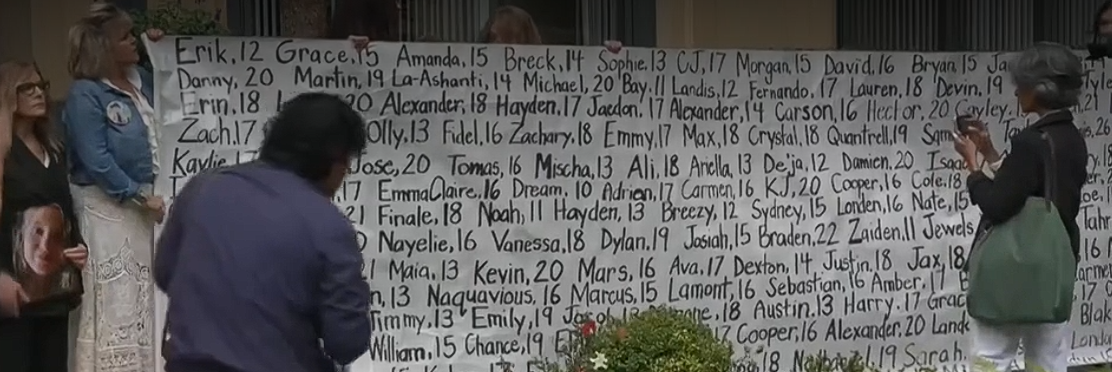 Erik, 12 Grace, 15 Amanda, 15 Breck, 14 Sophie, 13 CJ, 17 Morgan, 15 David, 16 Bryan, 15
Danny, 20 Martin, 19 La-Ashanti, 14 Michael, 20 Bay, 11 Landis, 12 Fernando, 17 Lauren, 18 Devin, 19
Erin, 18 20 Alexander, 18 Hayden, 17 Jaedon, 17 Alexander, 14 Carson, 16 Hector, 20 Cayley,
Zach, 17 Olly, 13 Fidel, 16 Zachary, 18 Emmy, 17 Max, 18 Crystal, 18 Quantrell, 19
Jose, 20 Tomas, 16 Mischa, 13 Ali, 18 Ariella, 13 De'ja, 12 Damien, 20
17 EmmaClaire, 16 Dream, 10 Adrien, 17 Carmen, 16 KJ, 20 Cooper, 16 Cole, 18
21 Finale, 18 Noah, 11 Hayden, 13 Breezy, 12 Sydney, 15 Londen, 16 Nate, 15
Nayelie, 16 Vanessa, 18 Dylan, 19 Josiah, 15 Braden, 22 Zaiden, 11 Jewels,
21 Maia, 13 Kevin, 20 Mars, 16 Ava, 17 Dexton, 14 Justin, 18 Jax, 18
13 Naquavious, 16 Marcus, 15 Lamont, 16 Sebastian, 16 Amber, 17
Timmy, 13 Emily, 19 18 Austin, 13 Harry, 17
William, 15 Chance, 19 17 Cooper, 16 Alexander, 20
18 19 Sarah,